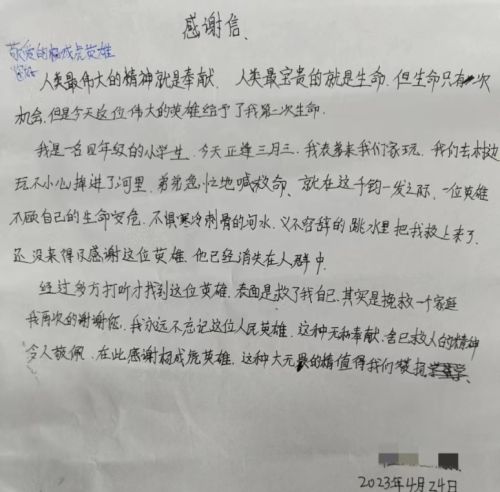 感谢信.
敬爱的杨成虎英雄
您好
人类最伟大的精神就是奉献、人类最宝贵的就是生命.但生命只有一次
机会,但是今天这位伟大的英雄给予了我第二次生命.
我是一名四年级的小学生.今天正逢三月三,我表弟来我们家玩,我们去村边
玩不小心掉进了河里.弟弟急忙地喊救命、就在这千钧一发之际,一位英雄
不顾自己的生命安危.不惧寒冷刺骨的河水、义不容辞的跳水里把我救上来了.
还没来得及感谢这位英雄.他已经消失在人群中.
经过多方打听才找到这位英雄.表面是救了我自己.其实是挽救一个家庭
我再次的谢谢您,我永远不忘记这位人民英雄.这种无私奉献.舍己救人的精神
令人敬佩.在此感谢杨成虎英雄,这种大无畏的精值得我们
2023年4月24日